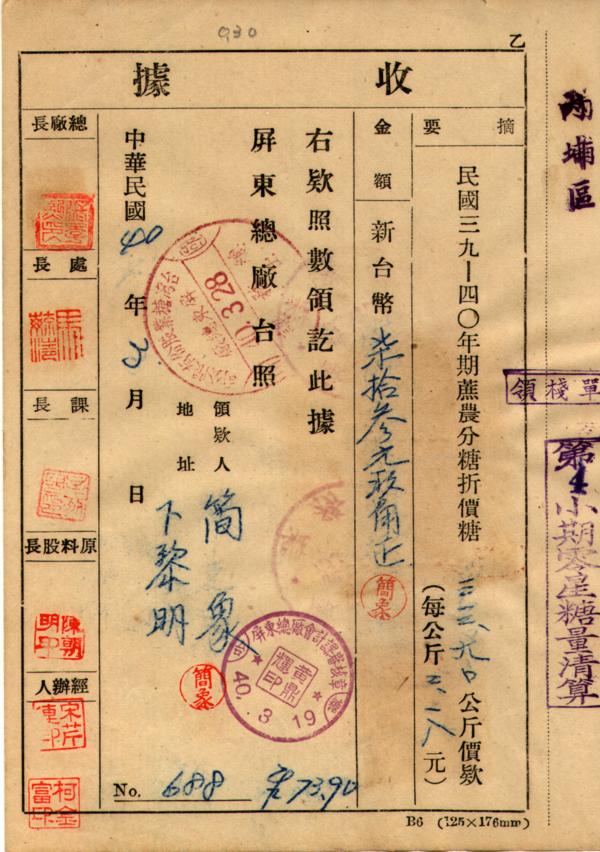 930
乙
收據
摘要
民國三九—四〇年期蔗農分糖折價糖
公斤價款
(每公斤 元)
金額
新台幣柒拾參元玖角正
簡象
右欵照數領訖此據
屏東總廠台照
領欵人 簡象
地址 下黎明
簡象
中華民國40年3月 日
總廠長
處長
課長
原料股長
陳朝明印
經辦人
柯金富印
屏東總廠會計課審核章
黃鼎輝印
40.3.19
3.28
No. 688
73.90
B6 (125×176mm)
埔區
領棧單
第4小期零星糖量清算